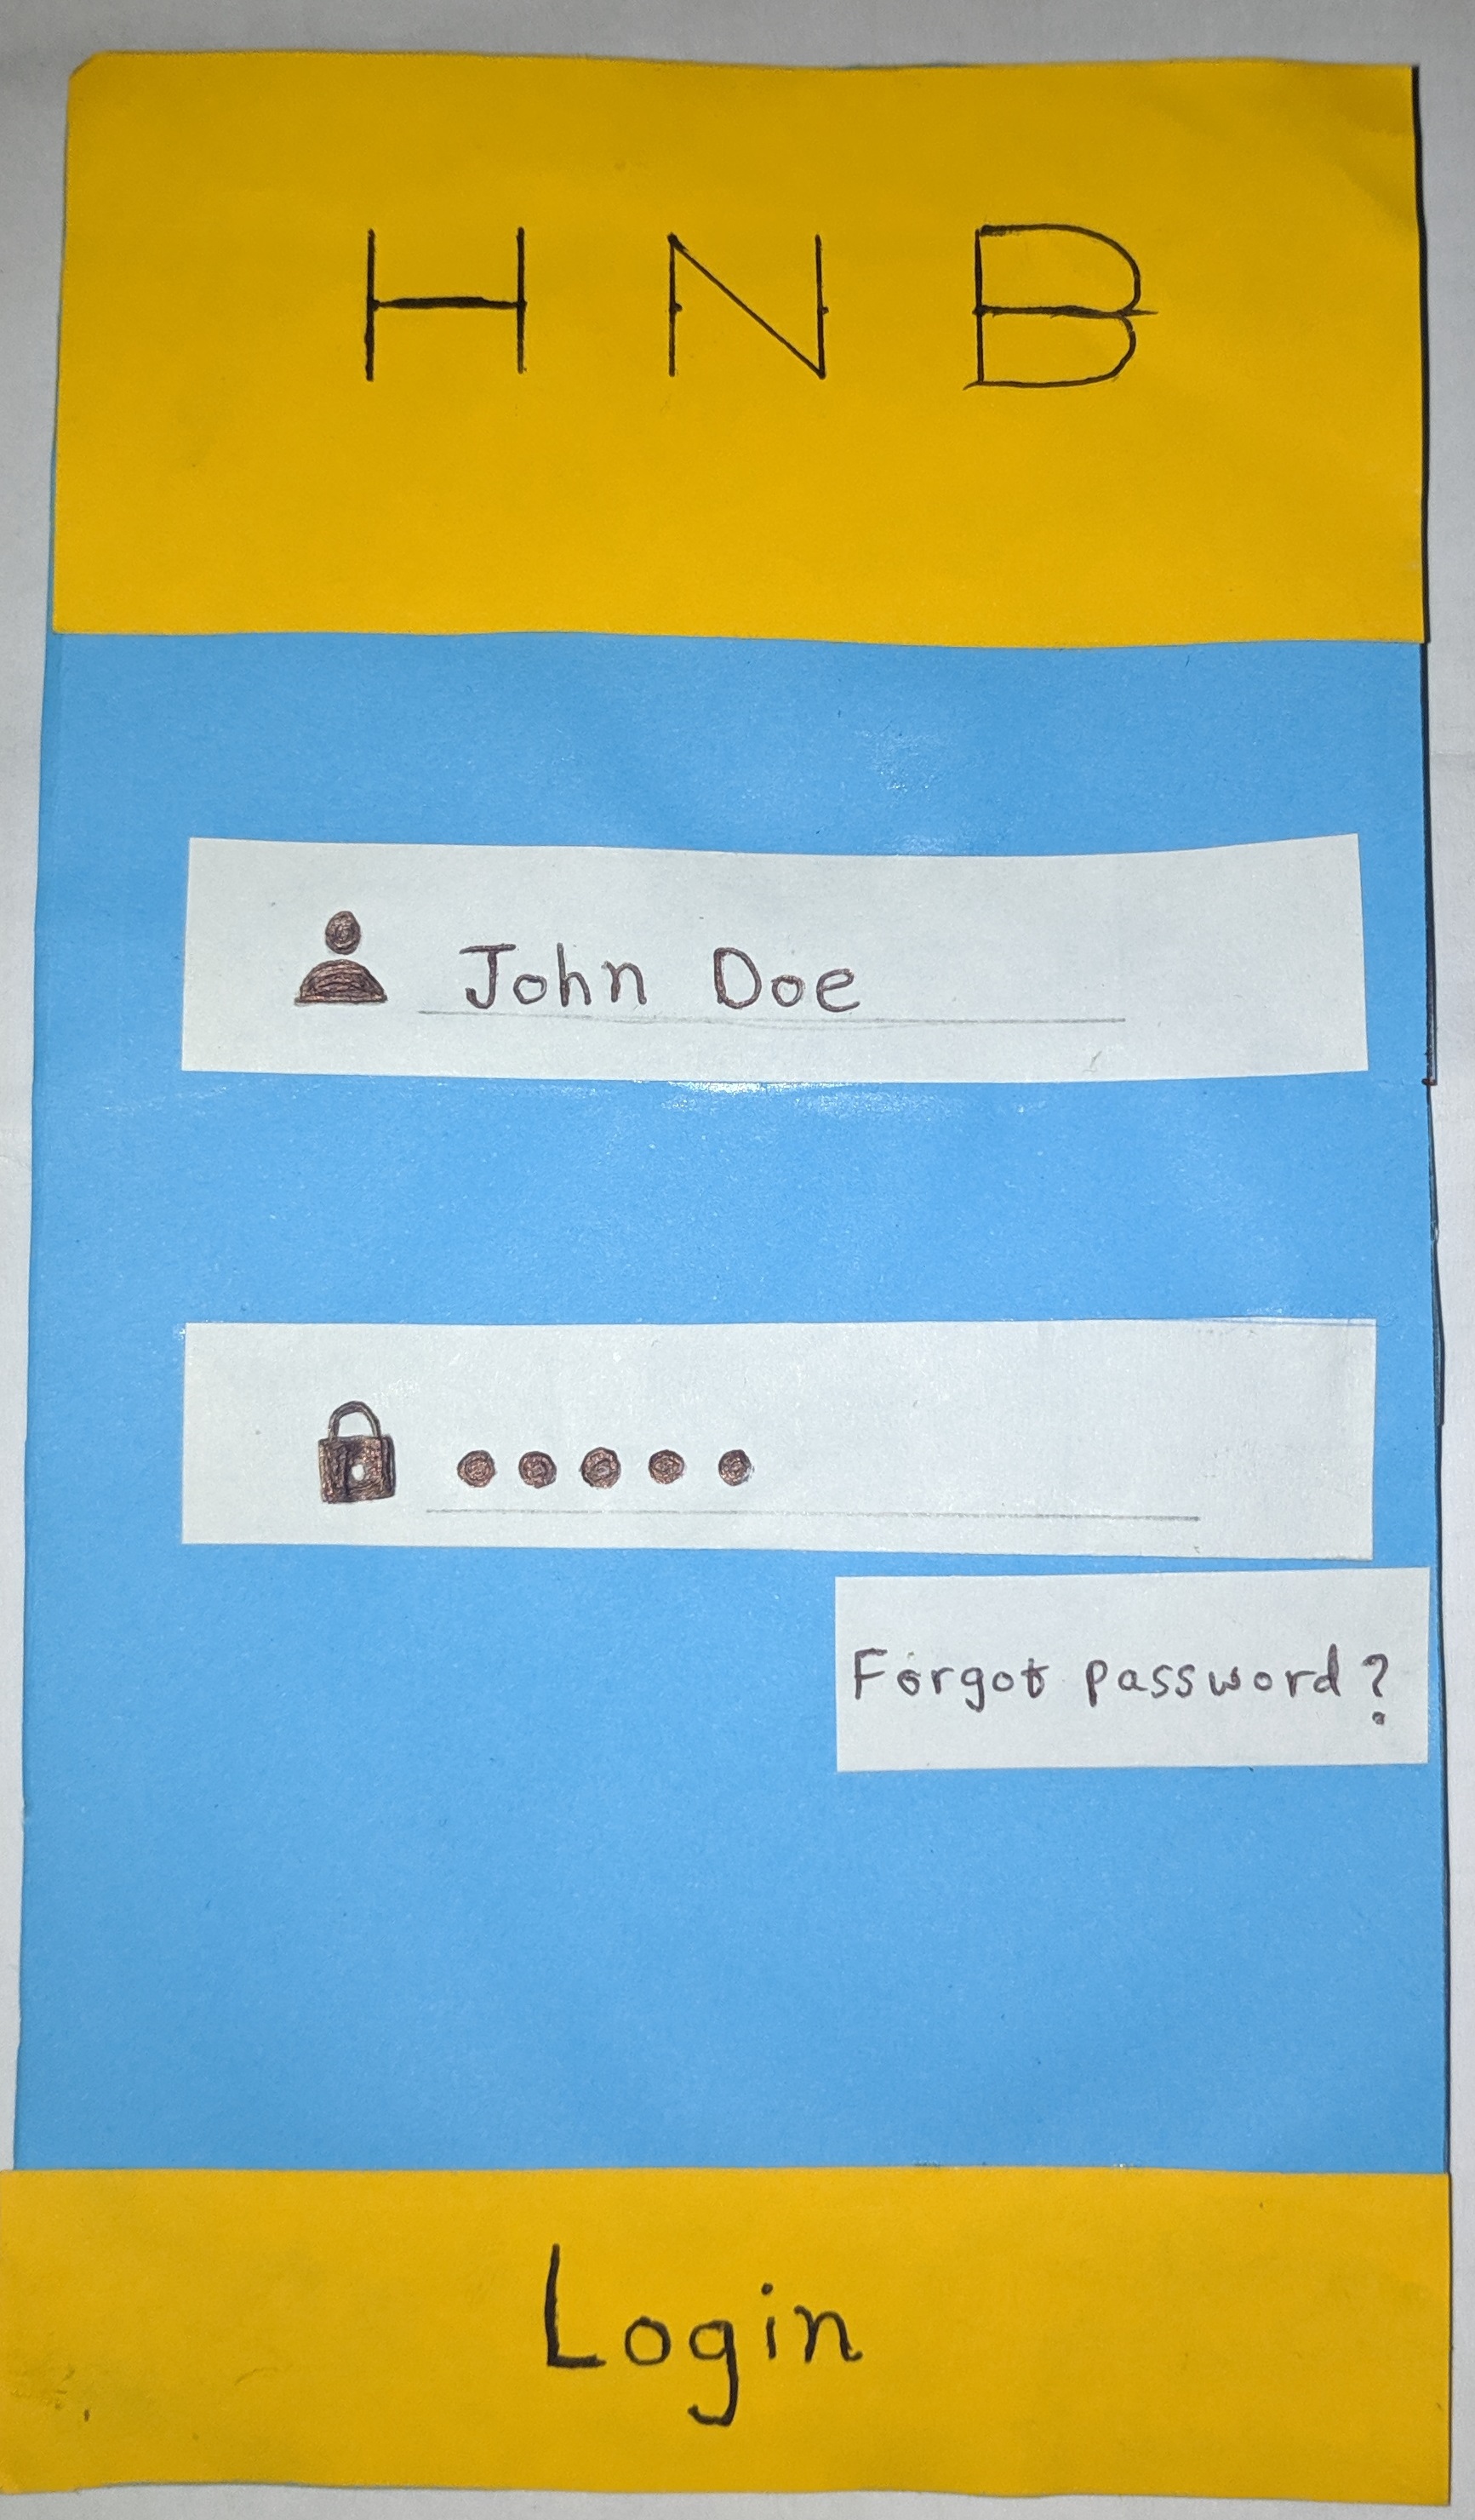 H N B
John Doe
•••••
Forgot password?
Login